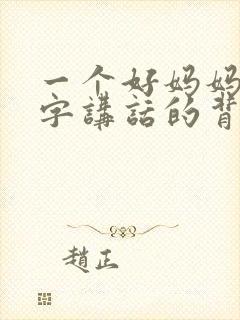 一个好妈妈
字講話的背
趙正